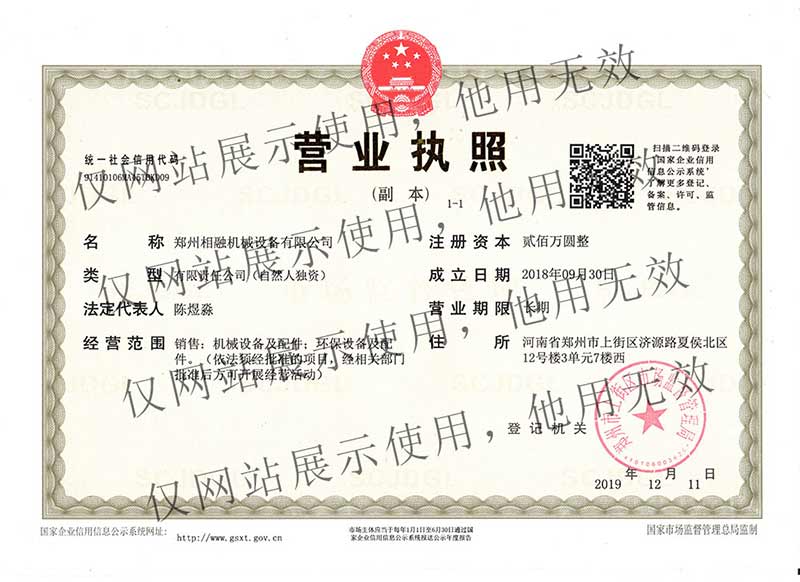 营业执照
(副 本) 1-1
统一社会信用代码
扫描二维码登录
'国家企业信用
信息公示系统'
了解更多登记、
备案、许可、监
管信息。
名 称 郑州相融机械设备有限公司
类 型 有限责任公司(自然人独资)
法定代表人 陈煜淼
经营范围 销售:机械设备及配件;环保设备及配
件。(依法须经批准的项目,经相关部门
批准后方可开展经营活动)
注册资本 贰佰万圆整
成立日期 2018年09月30日
营业期限 长期
住 所 河南省郑州市上街区济源路夏侯北区
12号楼3单元7楼西
登记机关
郑州市上街区市场监督管理局
2019 年 12 月 11 日
国家企业信用信息公示系统网址: http://www.gsxt.gov.cn
市场主体应当于每年1月1日至6月30日通过国
家企业信用信息公示系统报送公示年度报告
国家市场监督管理总局监制
仅网站展示使用,他用无效
仅网站展示使用,他用无效
仅网站展示使用,他用无效
仅网站展示使用,他用无效